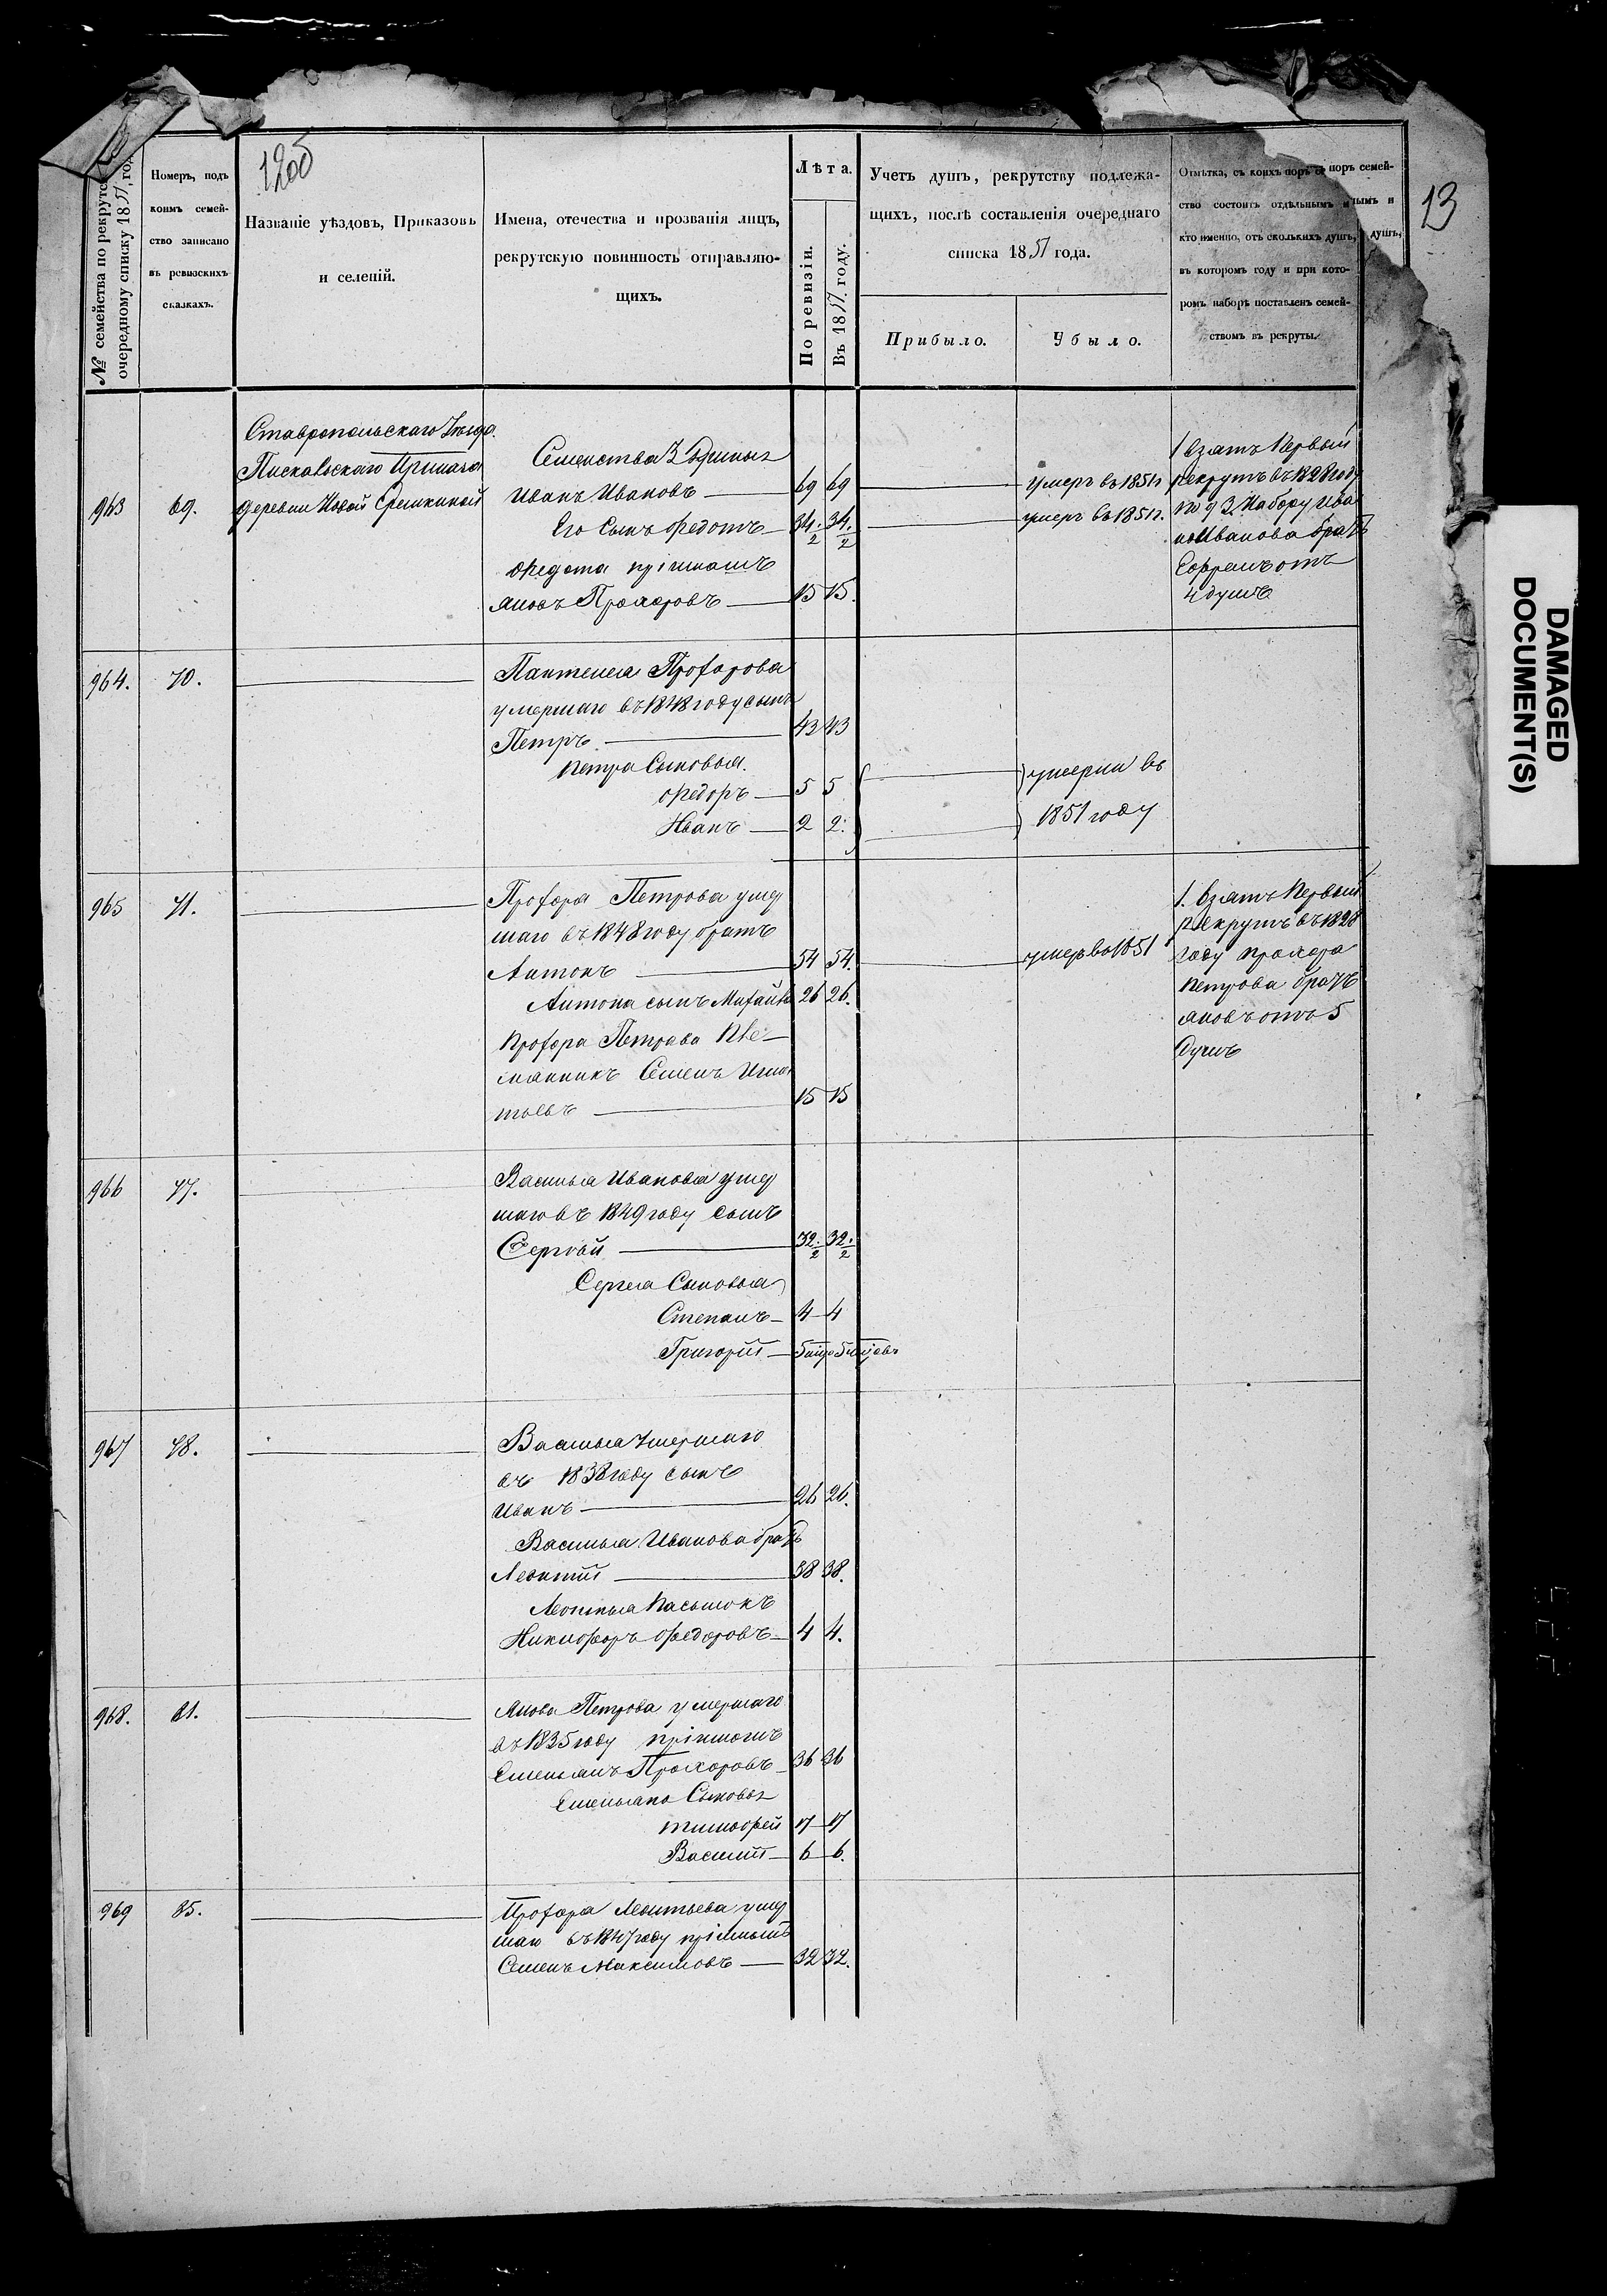 1205
13
№ семейства по рекрутс
очередному списку 1851, год
Номеръ, подъ
коимъ семей-
ство записано
въ ревизскихъ
сказкахъ.
Названіе уѣздовъ, Приказовъ
и селеній.
Имена, отечества и прозванія лицъ,
рекрутскую повинность отправляю-
щихъ.
Лѣта.
По ревизіи.
Въ 1851 году.
Учетъ душъ, рекрутству подлежа-
щихъ, послѣ составленія очереднаго
списка 1851 года.
Прибыло.
Убыло.
Отмѣтка, съ коихъ поръ се поръ семей-
ство состоитъ отдѣльнымъ и нымъ и
кто именно, отъ сколькихъ душъ, душъ,
въ которомъ году и при кото-
ромъ наборѣ поставленъ семей-
ствомъ въ рекруты.
963 69.
Ставропольскаго Уѣзда.
Пискальскаго Приказа
деревни Новой
Семейства 3 Душныя
Иванъ Ивановъ 69 69 умеръ въ 1851г
Его Сынъ Федотъ 34. 2 34. 2 умеръ въ 1851г.
Федота пріимышъ
Яковъ Прохоровъ 15 15.
1 взятъ Первый
рекрутъ въ 1828 году
по 93 Набору Ива
на Иванова братъ
Ефремъ отъ
4 душъ
964. 70.
Пантелея Прохорова
умершаго въ 1848 году сынъ
Петръ 43 43
Петра Сыновья.
Федоръ 5 5
Иванъ 2 2.
умерли въ
1851 году
965 71.
Прохора Петрова умер
шаго въ 1848 году братъ
Антонъ 54 54. умеръ въ 1851
Антона сынъ Михайла 26 26.
Прохора Петрова Пле-
мянникъ Семенъ Игна
тьевъ 15 15
1. взятъ Первый
рекрутъ въ 1828
году Прохора
Петрова братъ
Яковъ отъ 5
Душъ
966 77.
Василья Иванова умер
шаго въ 1849 году сынъ
Сергѣй 32. 2 32. 2
Сергея Сыновья
Степанъ 4 4
Григорій
967 78.
Василья Умершаго
въ 1838 году сынъ
Иванъ 26 26.
Василья Иванова братъ
Леонтій 38 38.
Леонтья Пасынокъ
Никифоръ Федоровъ 4 4.
968. 81.
Якова Петрова умершаго
въ 1835 году пріимышъ
Емельянъ Прохоровъ 36 36
Емельяна Сыновья
Тимофей 17 17
Василій 6 6.
969 85.
Прохора Леонтьева умер
шаго въ 1847 году пріимышъ
Семенъ Максимовъ 32 32.
DAMAGED
DOCUMENT(S)